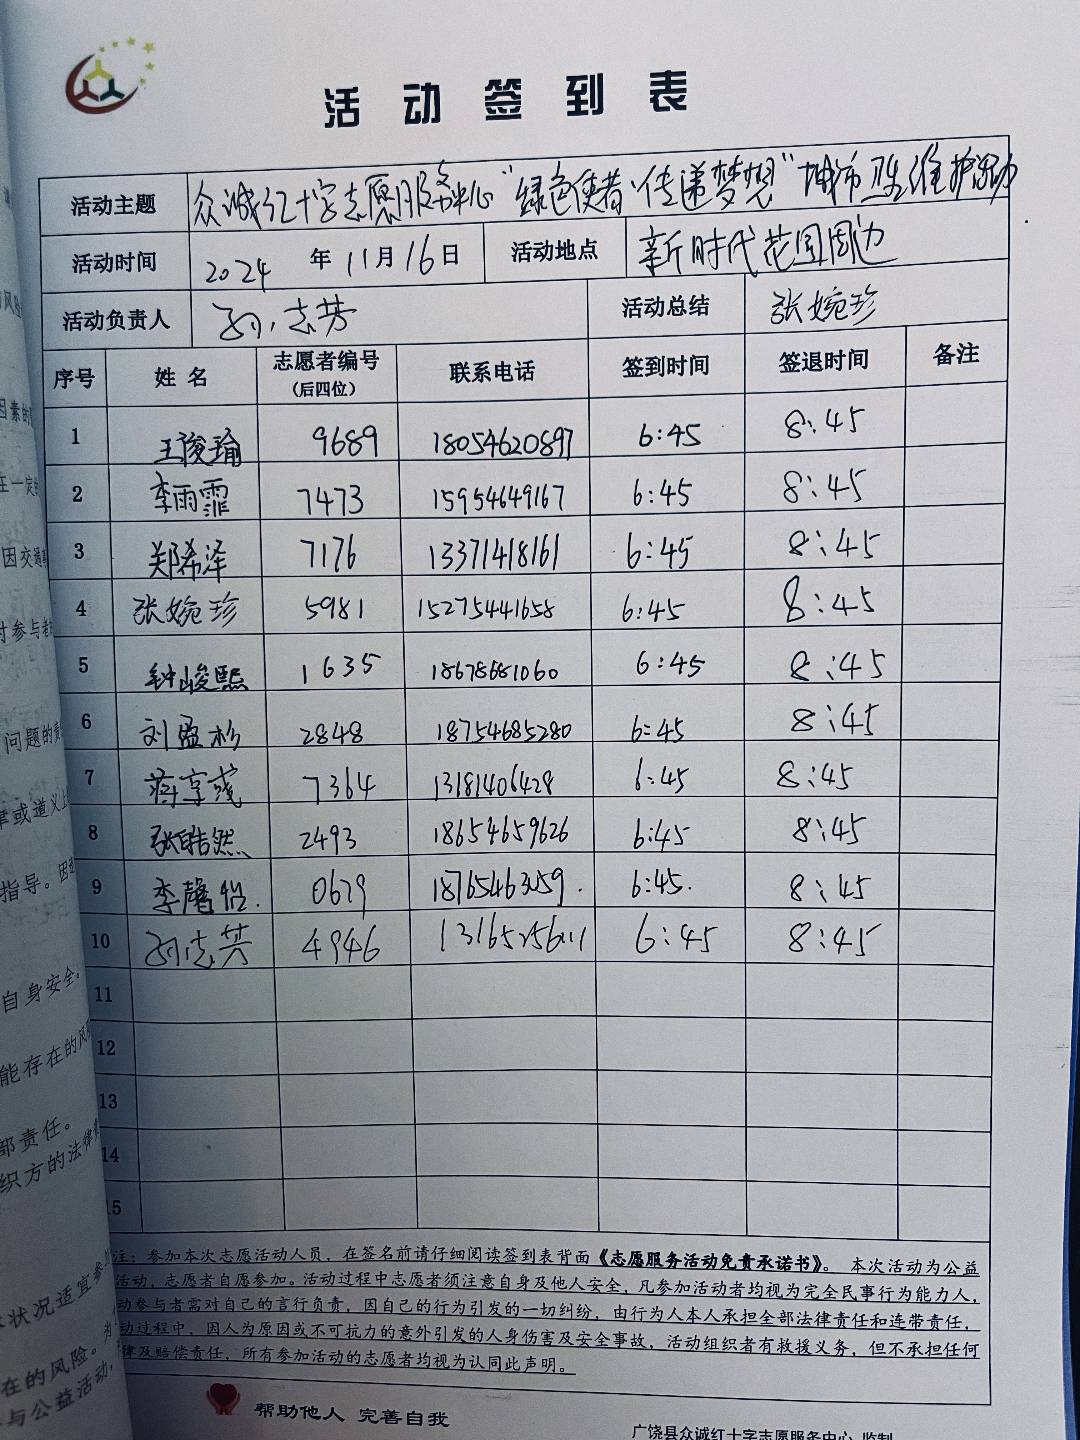 活动签到表
活动主题 众诚红十字志愿服务中心“绿色使者、传递梦想”城市卫生维护活动
活动时间 2024年11月16日 活动地点 新时代花园周边
活动负责人 孙志芳 活动总结 张婉珍
序号 姓名 志愿者编号（后四位） 联系电话 签到时间 签退时间 备注
1 王俊瑜 9689 18054620897 6:45 8:45
2 李雨霏 7473 15954649167 6:45 8:45
3 郑希泽 7176 13371418161 6:45 8:45
4 张婉珍 5981 15275441658 6:45 8:45
5 钟峻熙 1635 18678681060 6:45 8:45
6 刘盈杉 2848 18754685280 6:45 8:45
7 蒋享彧 7364 13181406428 6:45 8:45
8 张皓然 2493 18654659626 6:45 8:45
9 李馨怡 0679 18765463059 6:45 8:45
10 孙志芳 4946 6:45 8:45
11
12
13
14
15
注：参加本次志愿活动人员，在签名前请仔细阅读签到表背面《志愿服务活动免责承诺书》。本次活动为公益
活动，志愿者自愿参加。活动过程中志愿者须注意自身及他人安全，凡参加活动者均视为完全民事行为能力人，
动参与者需对自己的言行负责，因自己的行为引发的一切纠纷，由行为人本人承担全部法律责任和连带责任，
动过程中，因人为原因或不可抗力的意外引发的人身伤害及安全事故，活动组织者有救援义务，但不承担任何
律及赔偿责任，所有参加活动的志愿者均视为认同此声明。
帮助他人 完善自我
广饶县众诚红十字志愿服务中心 监制